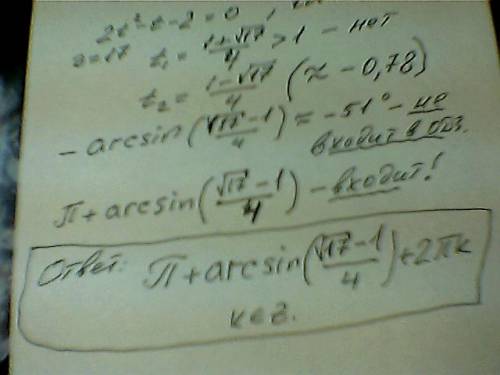 2t² - t - 2 = 0,
D = 17 t₁ = (1+√17)/4 > 1 - нет
t₂ = (1-√17)/4 (≈ -0,78)
-arcsin((√17-1)/4) ≈ -51° - не
входит в ОДЗ.
π + arcsin((√17-1)/4) - входит!
Ответ: π + arcsin((√17-1)/4) + 2πk
k∈Z.